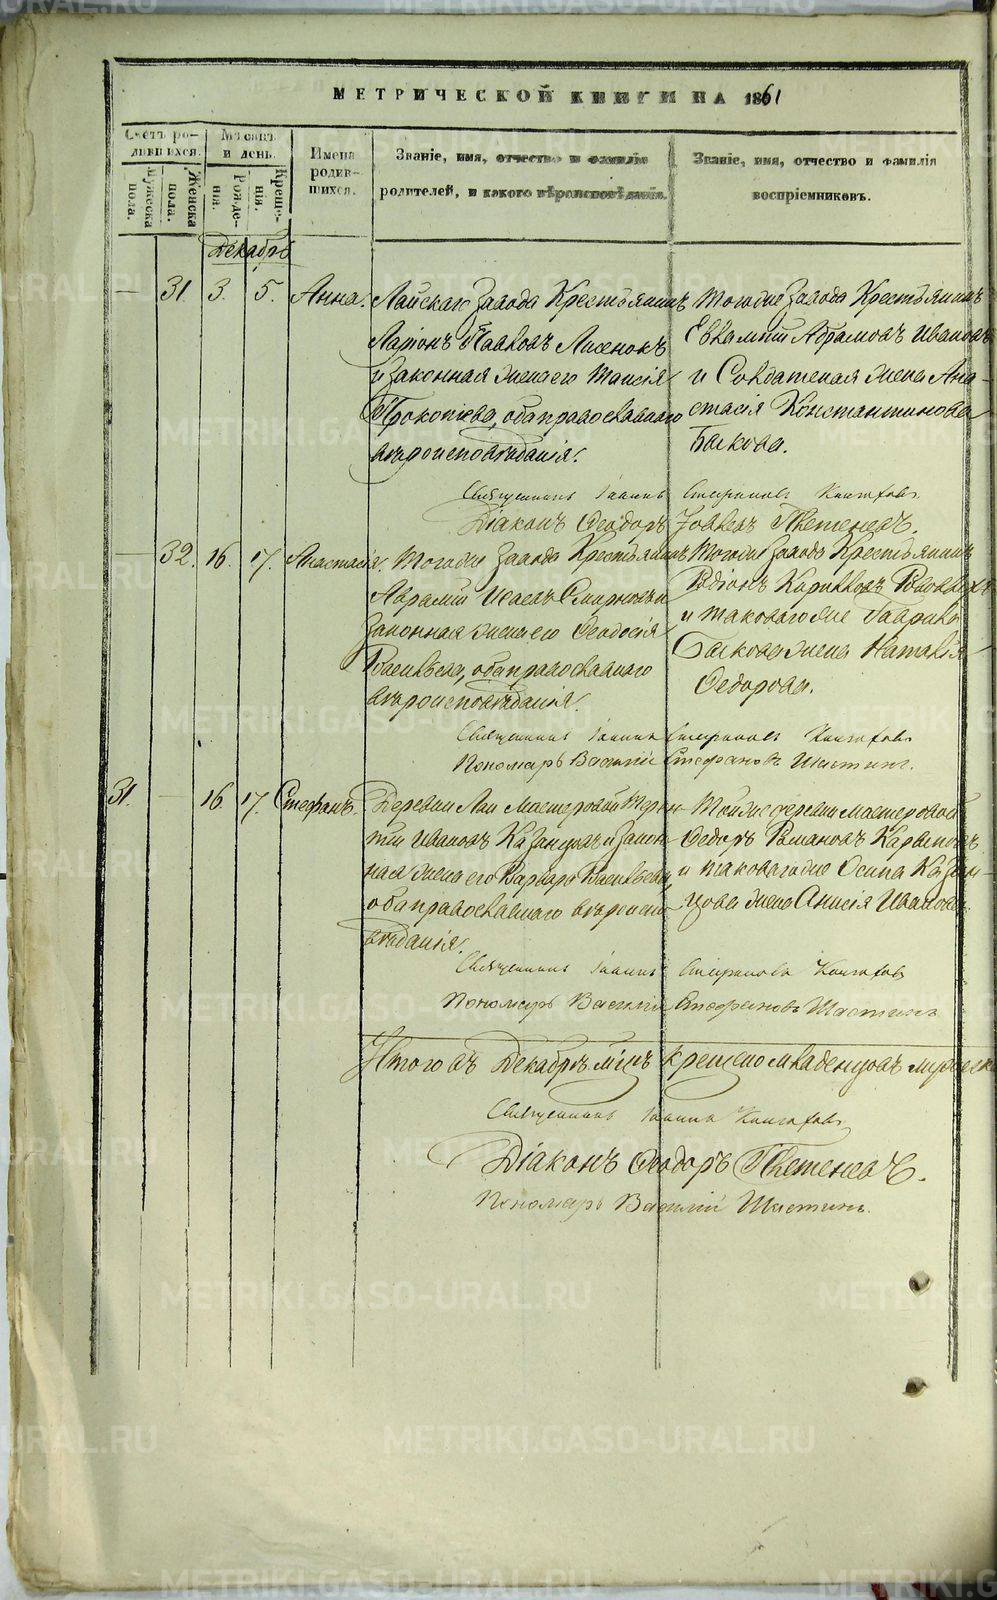 МЕТРИЧЕСКОЙ КНИГИ НА 1861
Счетъ родившихся.
Мѣсяцъ и день.
Имена родившихся.
Званіе, имя, отчество и фамилія
родителей, и какого вѣроисповѣданія.
Званіе, имя, отчество и фамилія
воспріемниковъ.
Мужеска пола.
Женска пола.
Рожденія.
Крещенія.
Декабрь
— 31. 3. 5. Анна.
Лайскаго Завода Крестьянинъ
Ларіонъ Павловъ Лисенокъ
и Законная жена его Таисія
Прокопіева, оба православнаго
вѣроисповѣданія.
Тогоже Завода Крестьянинъ
Евѳимій Абрамовъ Ивановъ
и Солдатская жена Ана-
стасія Константинова
Быкова.
Священникъ Іоаннъ Стефановъ
Діаконъ Ѳеодоръ
— 32. 16. 17. Анастасія.
Тогоже Завода Крестьянинъ
Авраамій Исаевъ Смирновъ и
Законная жена его Ѳеодосія
Васильева, оба православнаго
вѣроисповѣданія.
Тогоже Завода Крестьянинъ
Родіонъ
и таковагоже Гаврила
Быкова жена Наталія
Ѳедорова.
Священникъ Іоаннъ Стефановъ
Пономарь Василій Стефановъ Шастинъ.
31. — 16. 17. Стефанъ.
Деревни Лаи Мастеровой Терен-
тій Ивановъ Казанцовъ и Закон-
ная жена его Варвара Васильева,
оба православнаго вѣроиспо-
вѣданія.
Тойже деревни мастеровой
Ѳедоръ Романовъ
и таковагоже Осипа Казан-
цова жена Анисія Иванова.
Священникъ Іоаннъ Стефановъ
Пономарь Василій Стефановъ Шастинъ
Итого въ Декабрѣ м-цѣ крещено младенцовъ
Священникъ Іоаннъ
Діаконъ Ѳеодоръ
Пономарь Василій Шастинъ.
METRIKI.GASO-URAL.RU